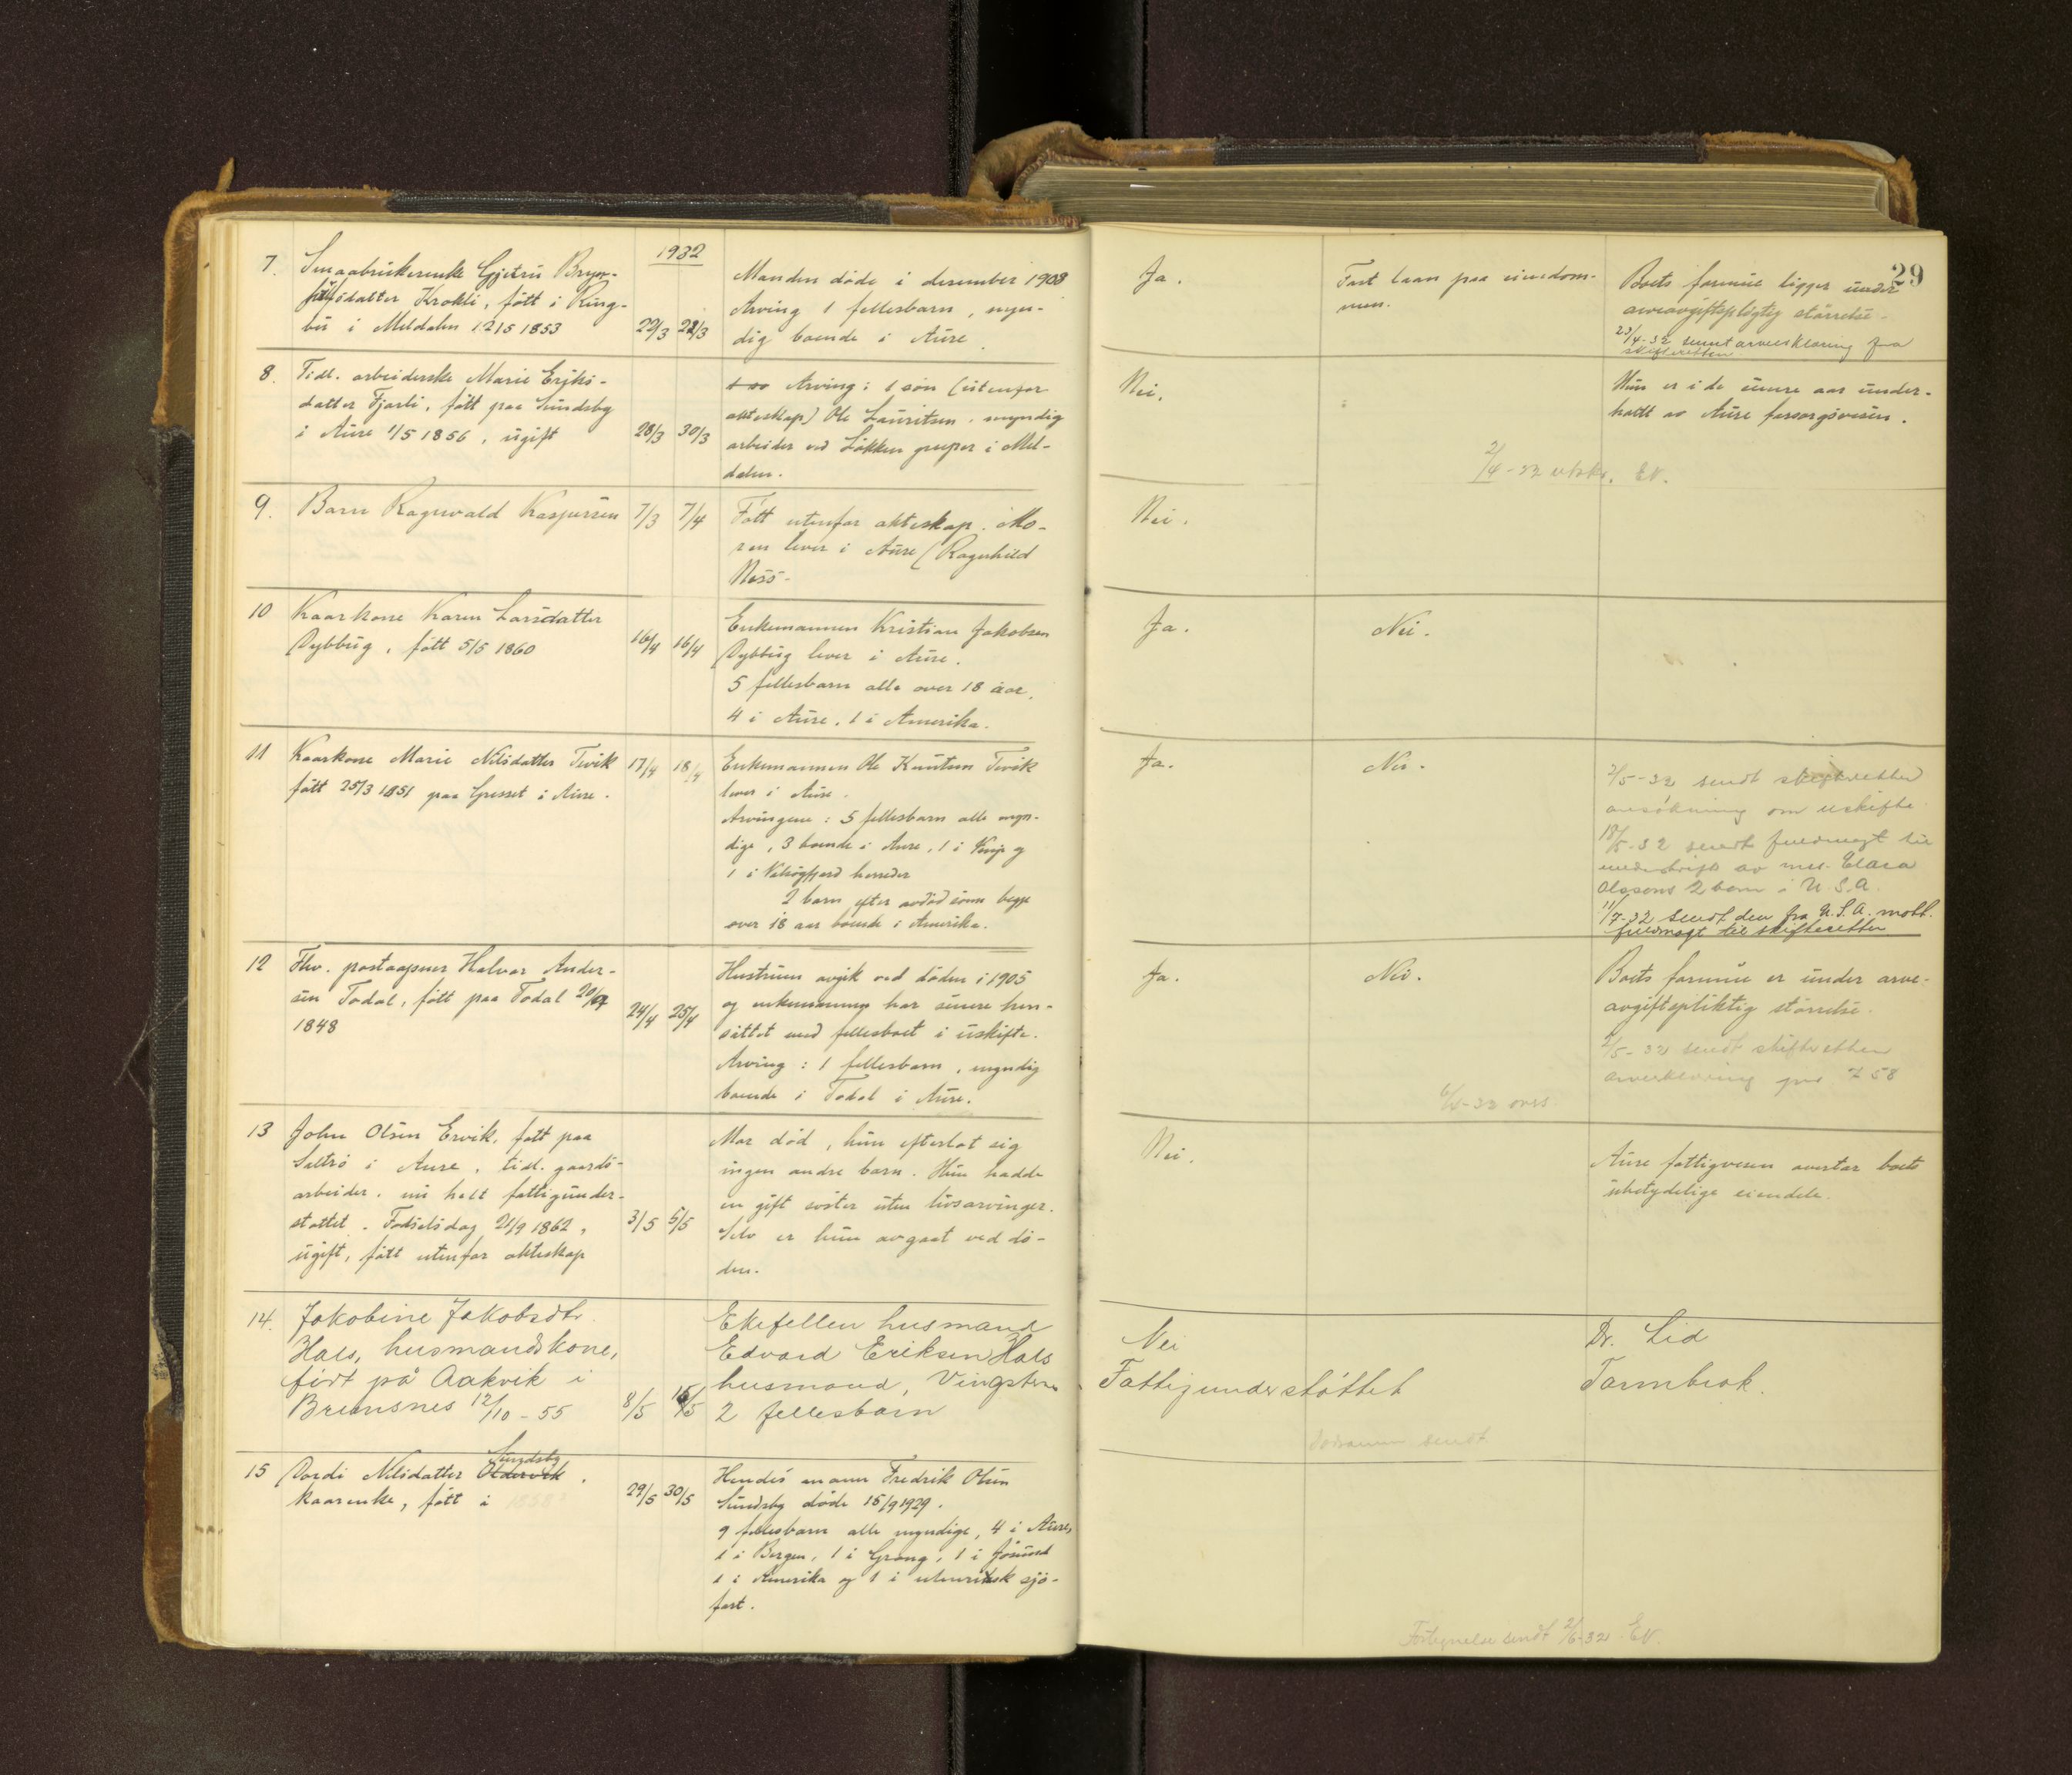 29
1932
7. Smaabrukerenke Gjetru Bryn-
datter Krokli, fött i Ring-
bu i Meldalen 12/5 1853
22/3 22/3
Manden döde i desember 1908
Arving 1 fellesbarn, myn-
dig boende i Aure
Ja.
Fast laan paa eiendom-
men.
Boets formue ligger under
arveavgiftspligtig störrelse.
23/4-32 sendt arveerklæring fra
skifteretten
8. Tidl. arbeiderske Marie Eriks-
datter Fjærli, fött paa Sundsby
i Aure 1/5 1856, ugift
28/3 30/3
Arving: 1 sön (utenfor
ekteskap) Ole Lauritsen, myndig
arbeider ved Lökken gruper i Mel-
dalen.
Nei.
Hun er i de senere aar under-
holdt av Aure forsorgsvesen.
2/4-32 utskr. EN.
9. Barn Ragnvald Kaspersen 7/3 7/4
Fött utenfor ekteskap. Mo-
ren lever i Aure (Ragnhild
Ness-
Nei.
10 Kaarkone Karen Larsdatter
Dybbug, fött 5/5 1860
16/4 16/4
Enkemannen Kristian Jakobsen
Dybbug lever i Aure.
5 fellesbarn alle over 18 aar,
4 i Aure, 1 i Amerika.
Ja.
Nei.
11 Kaarkone Marie Nilsdatter Tevik 17/4 18/4
fött 25/3 1851 paa Gresset i Aure.
Enkemannen Ole Knutsen Tevik
lever i Aure.
Arvingene: 5 fellesbarn alle myn-
dige, 3 boende i Aure, 1 i og
1 i Valsögfjord herreder
2 barn efter avdöd sönn begge
over 18 aar boende i Amerika.
Ja.
Nei.
2/5-32 sendt skifteretten
ansökning om uskifte.
18/5-32 sendt fuldmagt til
underskrift av mrs. Clara
Olssons 2 barn i U.S.A.
11/7-32 sendt den fra U.S.A. mott.
fuldmagt til skifteretten
12 Fhv. postaapner Halvor Ander-
sen Todal, fött paa Todal
1848
24/4 25/4
Hustruen avgik ved döden i 1905
og enkemannen har senere hen-
sittet med fellesboet i uskifte.
Arving: 1 fellesbarn, myndig
boende i Todal i Aure.
Ja.
Nei.
Boets formue er under arve-
avgiftspliktig störrelse.
2/5-32 sendt skifteretten
arveerklæring
13 John Olsen Ervik, fött paa
Seltrö i Aure, tidl. gaards-
arbeider, nu helt fattigunder-
stöttet. Födselsdag 21/9 1862,
ugift, fött utenfor ekteskap
3/5 5/5
Mor död, hun efterlot sig
ingen andre barn. Hun hadde
en gift söster uten livsarvinger.
Selv er hun avgaat ved dö-
den.
Nei.
Aure fattigvesen overtar boets
ubetydelige eiendele.
14. Jakobine Jakobsdtr.
Hals, husmandskone,
födt på Aakvik i
Bremsnes 12/10-55
8/5
Ektefellen husmand
Edvard Eriksen Hals
husmand, Vingsternes
2 fellesbarn
Nei
Fattigunderstöttet
Dr. Lid
Tarmbrok.
sendt
15 Dordi Nilsdatter Sundsby
Oldervik.
kaarenke, fött i 1858
29/5 30/5
Hendes mann Fredrik Olsen
Sundsby döde 15/9 1929.
9 fellesbarn alle myndige, 4 i Aure,
1 i Bergen, 1 i Grong, 1 i Jösund
1 i Amerika og 1 i utenriksk sjö-
fart.
Fortegnelse sendt 2/6-32 EN.